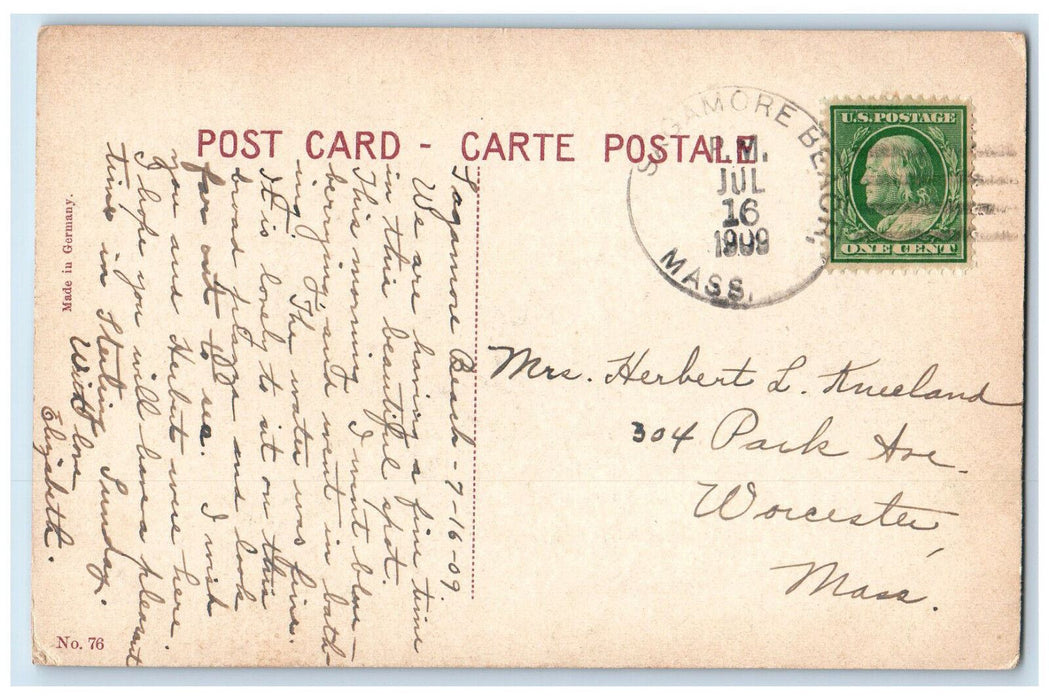 POST CARD - CARTE POSTALE
SAGAMORE BEACH,
P.M.
JUL
16
1909
MASS.
U.S. POSTAGE
ONE CENT
Sagamore Beach - 7-16-09.
We are having a fine time
in this beautiful spot.
This morning I went blue-
berrying, and went in bath-
ing. The water was fine.
It is lovely to sit on this
broad piazza and look
far out to sea. I wish
you and Herbert were here.
I hope you will have a pleasant
time in Sterling Sunday.
With love
Elizabeth.
Mrs. Herbert L. Kneeland
304 Park Ave.
Worcester,
Mass.
Made in Germany.
No. 76